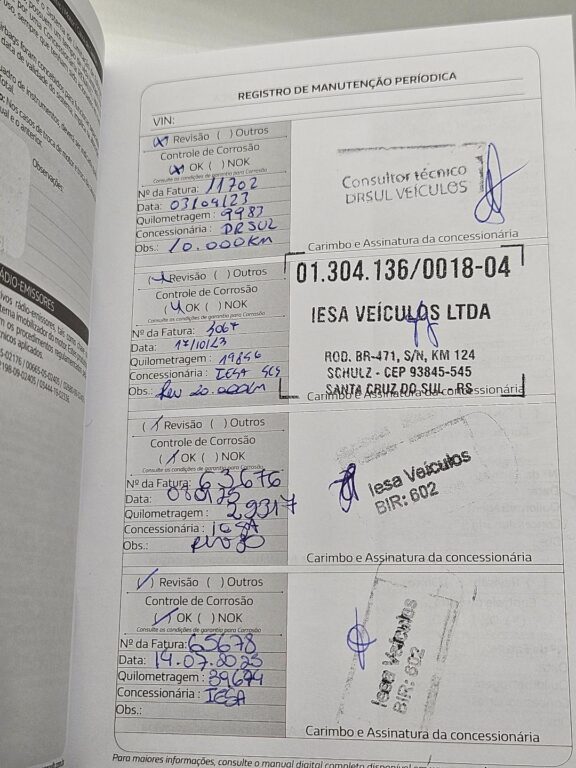 REGISTRO DE MANUTENÇÃO PERÍODICA
VIN:
(x) Revisão ( ) Outros
Controle de Corrosão
(x) OK ( ) NOK
Consulte as condições de garantia para Corrosão
Nº da Fatura: 11702
Data: 03/04/23
Quilometragem: 9983
Concessionária: DRSUL
Obs.: 10.000KM
Consultor técnico
DRSUL VEÍCULOS
Carimbo e Assinatura da concessionária
(x) Revisão ( ) Outros
Controle de Corrosão
(x) OK ( ) NOK
Consulte as condições de garantia para Corrosão
Nº da Fatura: 3067
Data: 17/10/23
Quilometragem: 19856
Concessionária: IESA SCS
Obs.: Rev 20.000KM
01.304.136/0018-04
IESA VEÍCULOS LTDA
ROD. BR-471, S/N, KM 124
SCHULZ - CEP 93845-545
SANTA CRUZ DO SUL - RS
Carimbo e Assinatura da concessionária
(/) Revisão ( ) Outros
Controle de Corrosão
(/) OK ( ) NOK
Consulte as condições de garantia para Corrosão
Nº da Fatura: 63676
Data:
Quilometragem: 29317
Concessionária: IESA
Obs.:
Iesa Veículos
BIR: 602
Carimbo e Assinatura da concessionária
(/) Revisão ( ) Outros
Controle de Corrosão
(/) OK ( ) NOK
Consulte as condições de garantia para Corrosão
Nº da Fatura: 65678
Data: 19.07.2025
Quilometragem: 39674
Concessionária: IESA
Obs.:
Iesa Veículos
BIR: 602
Carimbo e Assinatura da concessionária
Para maiores informações, consulte o manual digital completo disponível em
Observações
RÁDIO-EMISSORES